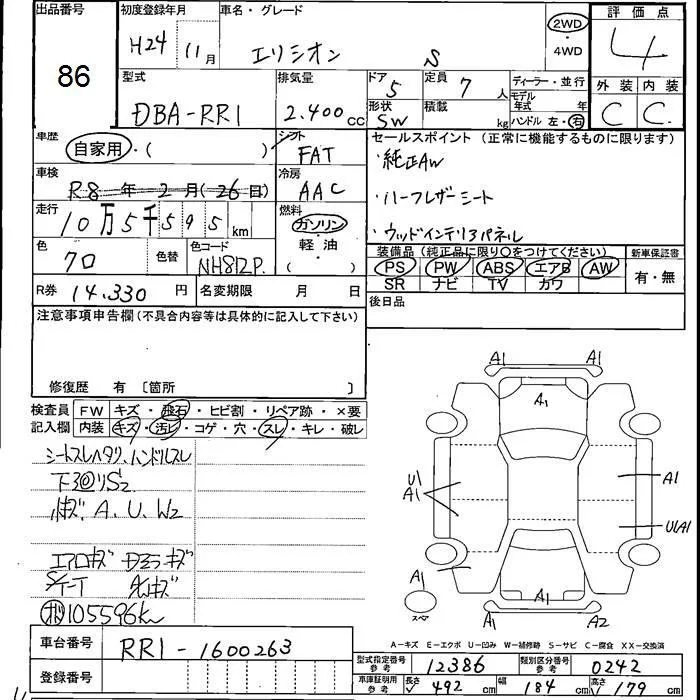 出品番号 初度登録年月 車名・グレード 2WD 評価点
86 H24 11月 エリシオン S ・4WD 4
型式 排気量 ドア 5 定員 7人 ディーラー・並行 外装 内装
DBA-RR1 2.400cc 形状 SW 積載 kg モデル年式 年 C C
ハンドル 左・右
車歴 自家用・( ) シフト FAT セールスポイント (正常に機能するものに限ります)
・純正AW
車検 R8年2月(26日) 冷房 AAC ・ハーフレザーシート
走行 10万5千595km 燃料 ガソリン・軽油・( ) ・ウッドインテリアパネル
色 色替 色コード NH812P 装備品 (純正品に限り○をつけてください) 新車保証書
PS PW ABS エアB AW 有・無
SR ナビ TV カワ
R券 14.330円 名変期限 月 日 後日品
注意事項申告欄(不具合内容等は具体的に記入して下さい)
修復歴 有 〔箇所 〕
検査員記入欄 FW キズ・飛石・ヒビ割・リペア跡・×要
内装 キズ・汚レ・コゲ・穴・スレ・キレ・破レ
シートスレヘタリ、ハンドルスレ
A. U. W2
エアロキズ
105596km
A1 A1
A1
U1 A1
A1 U1A1
A1 A1
スペア A1 A2
A-キズ E-エクボ U-凹み W-補修跡 S-サビ C-腐食 XX-交換済
車台番号 RR1-1600263
型式指定番号参考 12386 類別区分番号参考 0242
登録番号 車庫証明用参考 長さ 492cm 幅 184cm 高さ 179cm